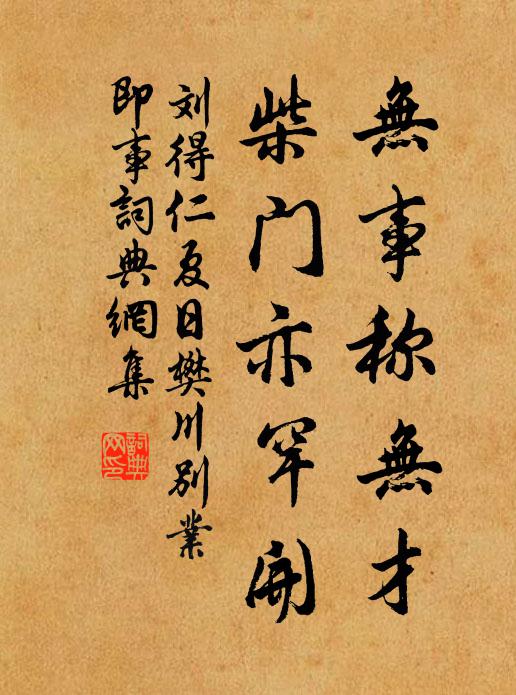 無事称無才
柴門亦罕開
刘得仁夏日樊川別業
即事詞典網集
詞典网印